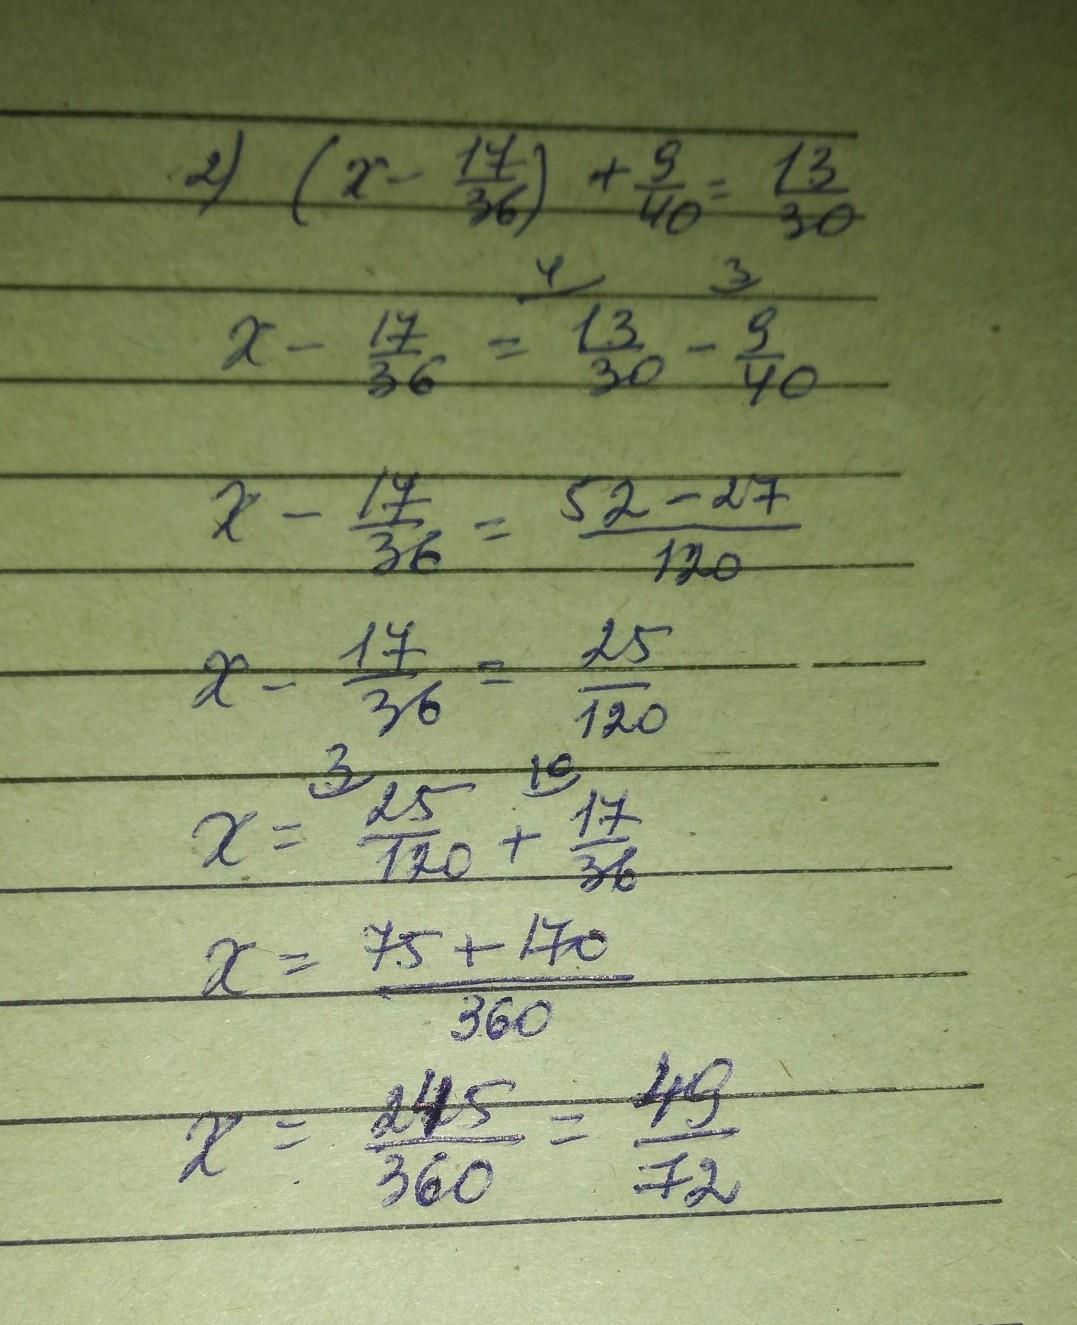 2) (x - 17/36) + 9/40 = 13/30
4 3
x - 17/36 = 13/30 - 9/40
x - 17/36 = 52 - 27/120
x - 17/36 = 25/120
3 10
x = 25/120 + 17/36
x = 75 + 170/360
x = 245/360 = 49/72